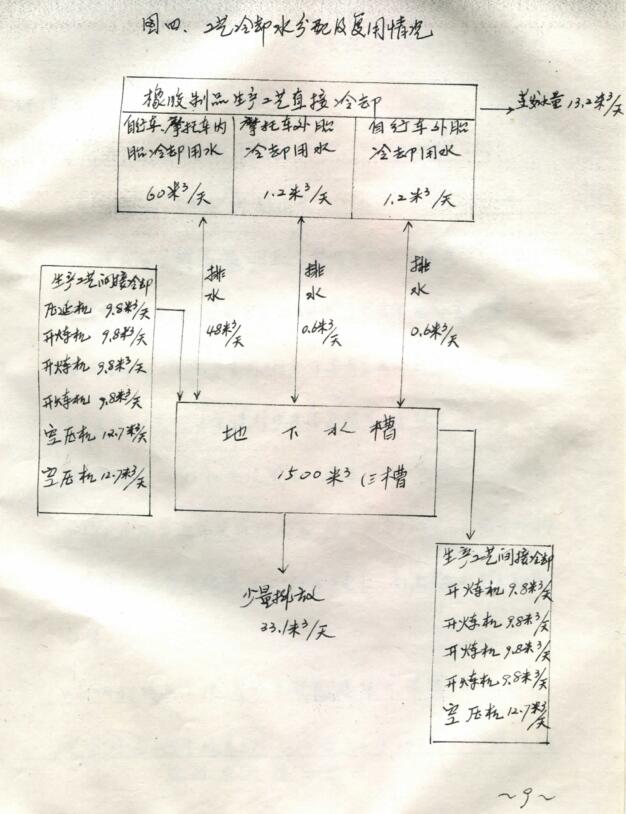 图四、工艺冷却水分配及复用情况
橡胶制品生产工艺直接冷却
蒸发水量 13.2米³/天
自行车、摩托车内
胎冷却用水
60米³/天
摩托车外胎
冷却用水
1.2米³/天
自行车外胎
冷却用水
1.2米³/天
排水
48米³/天
排水
0.6米³/天
排水
0.6米³/天
生产工艺间接冷却
压延机 9.8米³/天
开炼机 9.8米³/天
开炼机 9.8米³/天
开炼机 9.8米³/天
空压机 12.7米³/天
空压机 12.7米³/天
地下水槽
1500米³ (三槽
少量排放
33.1米³/天
生产工艺间接冷却
开炼机 9.8米³/天
开炼机 9.8米³/天
开炼机 9.8米³/天
开炼机 9.8米³/天
空压机 12.7米³/天
~9~